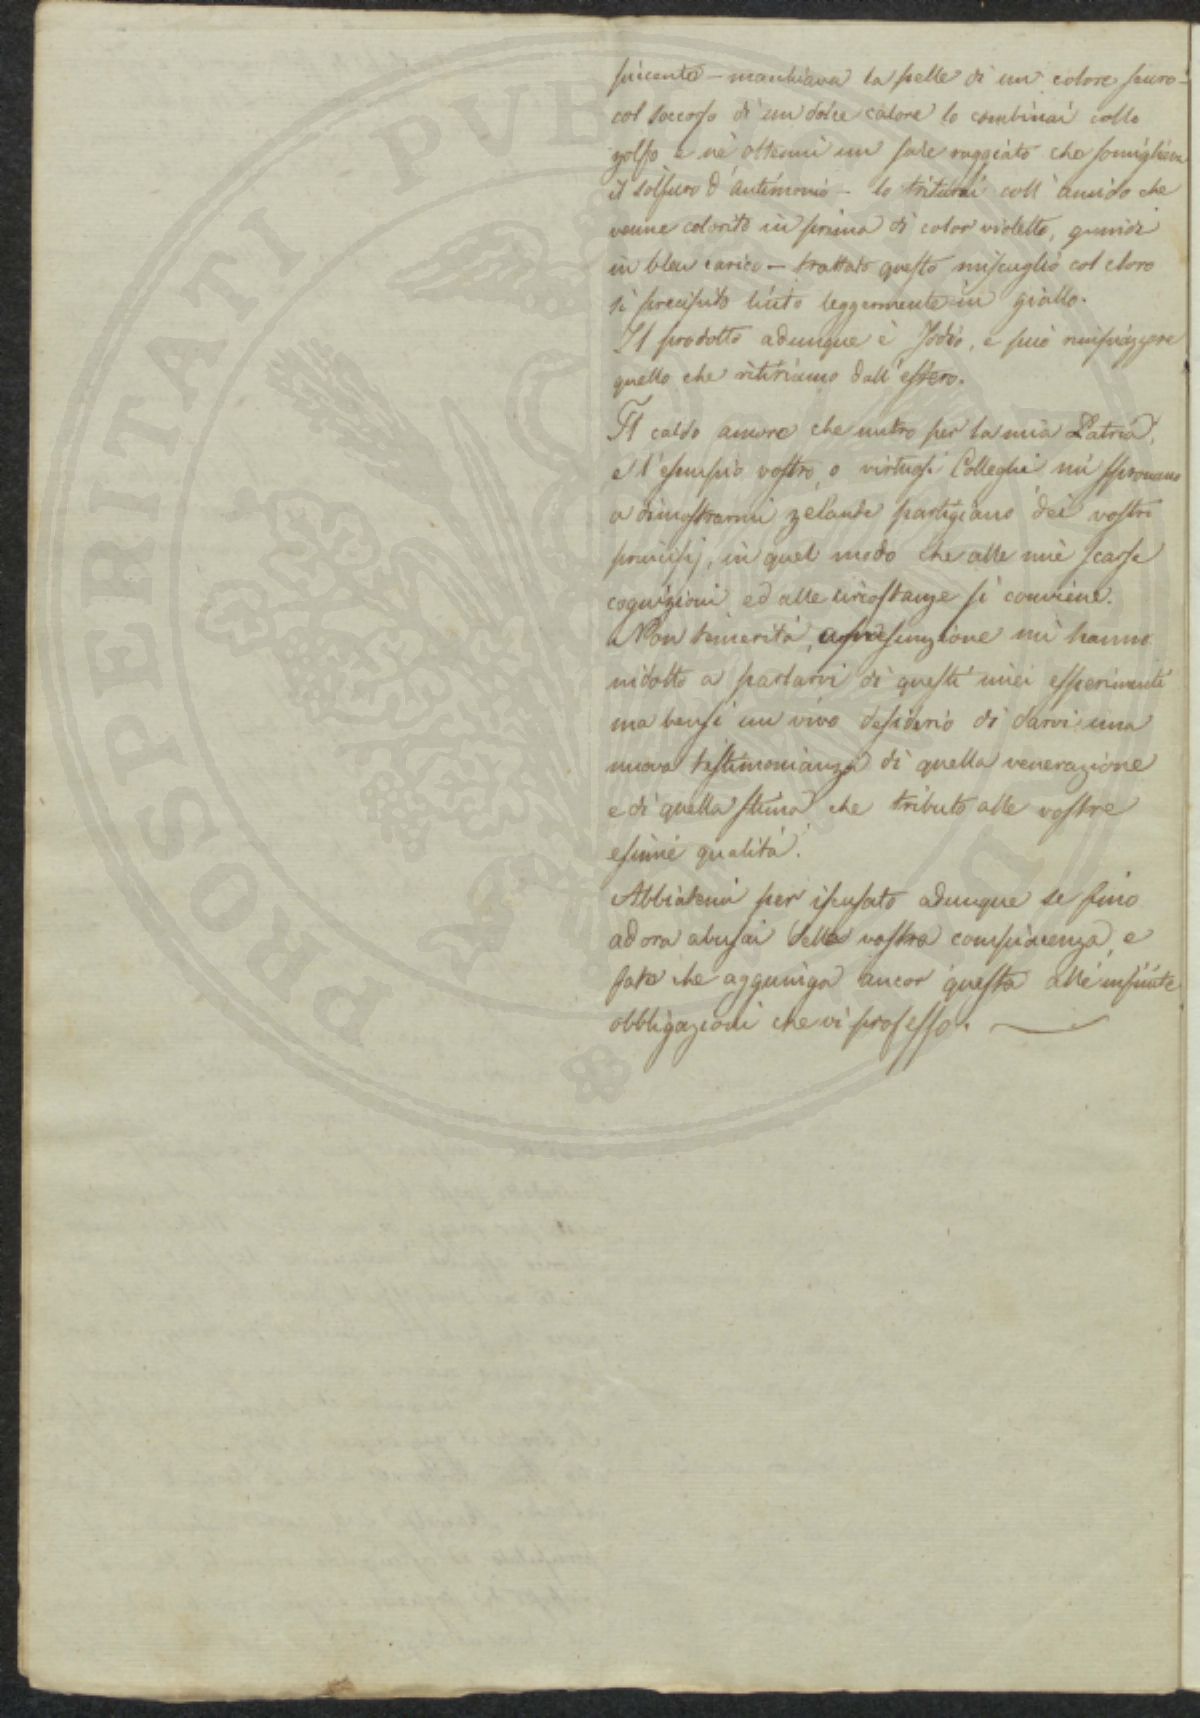 piccante – macchiava la pelle di un colore scuro –
col soccorso di un dolce calore lo combinai collo
zolfo e ne ottenni un sale raggiato che somigliava
il solfuro d'antimonio – lo triturai coll'amido che
venne colorito in prima di color violetto, quindi
in bleu carico – trattato questo miscuglio col cloro
si precipitò tinto leggermente in giallo.
Il prodotto adunque è Jodio, e può rimpiazzare
quello che ritiriamo dall'estero.
Il caldo amore che nutro per la mia Patria,
e l'esempio vostro, o virtuosi Colleghi mi spronano
a dimostrarmi zelante partigiano dei vostri
principj, in quel modo che alle mie scarse
cognizioni ed alle circostanze si conviene.
Non temerità, o presunzione mi hanno
ridotto a parlarvi di questi miei esperimenti
ma bensì un vivo desiderio di darvi una
nuova testimonianza di quella venerazione
e di quella stima che tributo alle vostre
esimie qualità.
Abbiatemi per iscusato adunque se fino
ad ora abusai della vostra compiacenza, e
fate che aggiunga ancor questa alle infinite
obbligazioni che vi professo.
PROSPERITATI PVBL